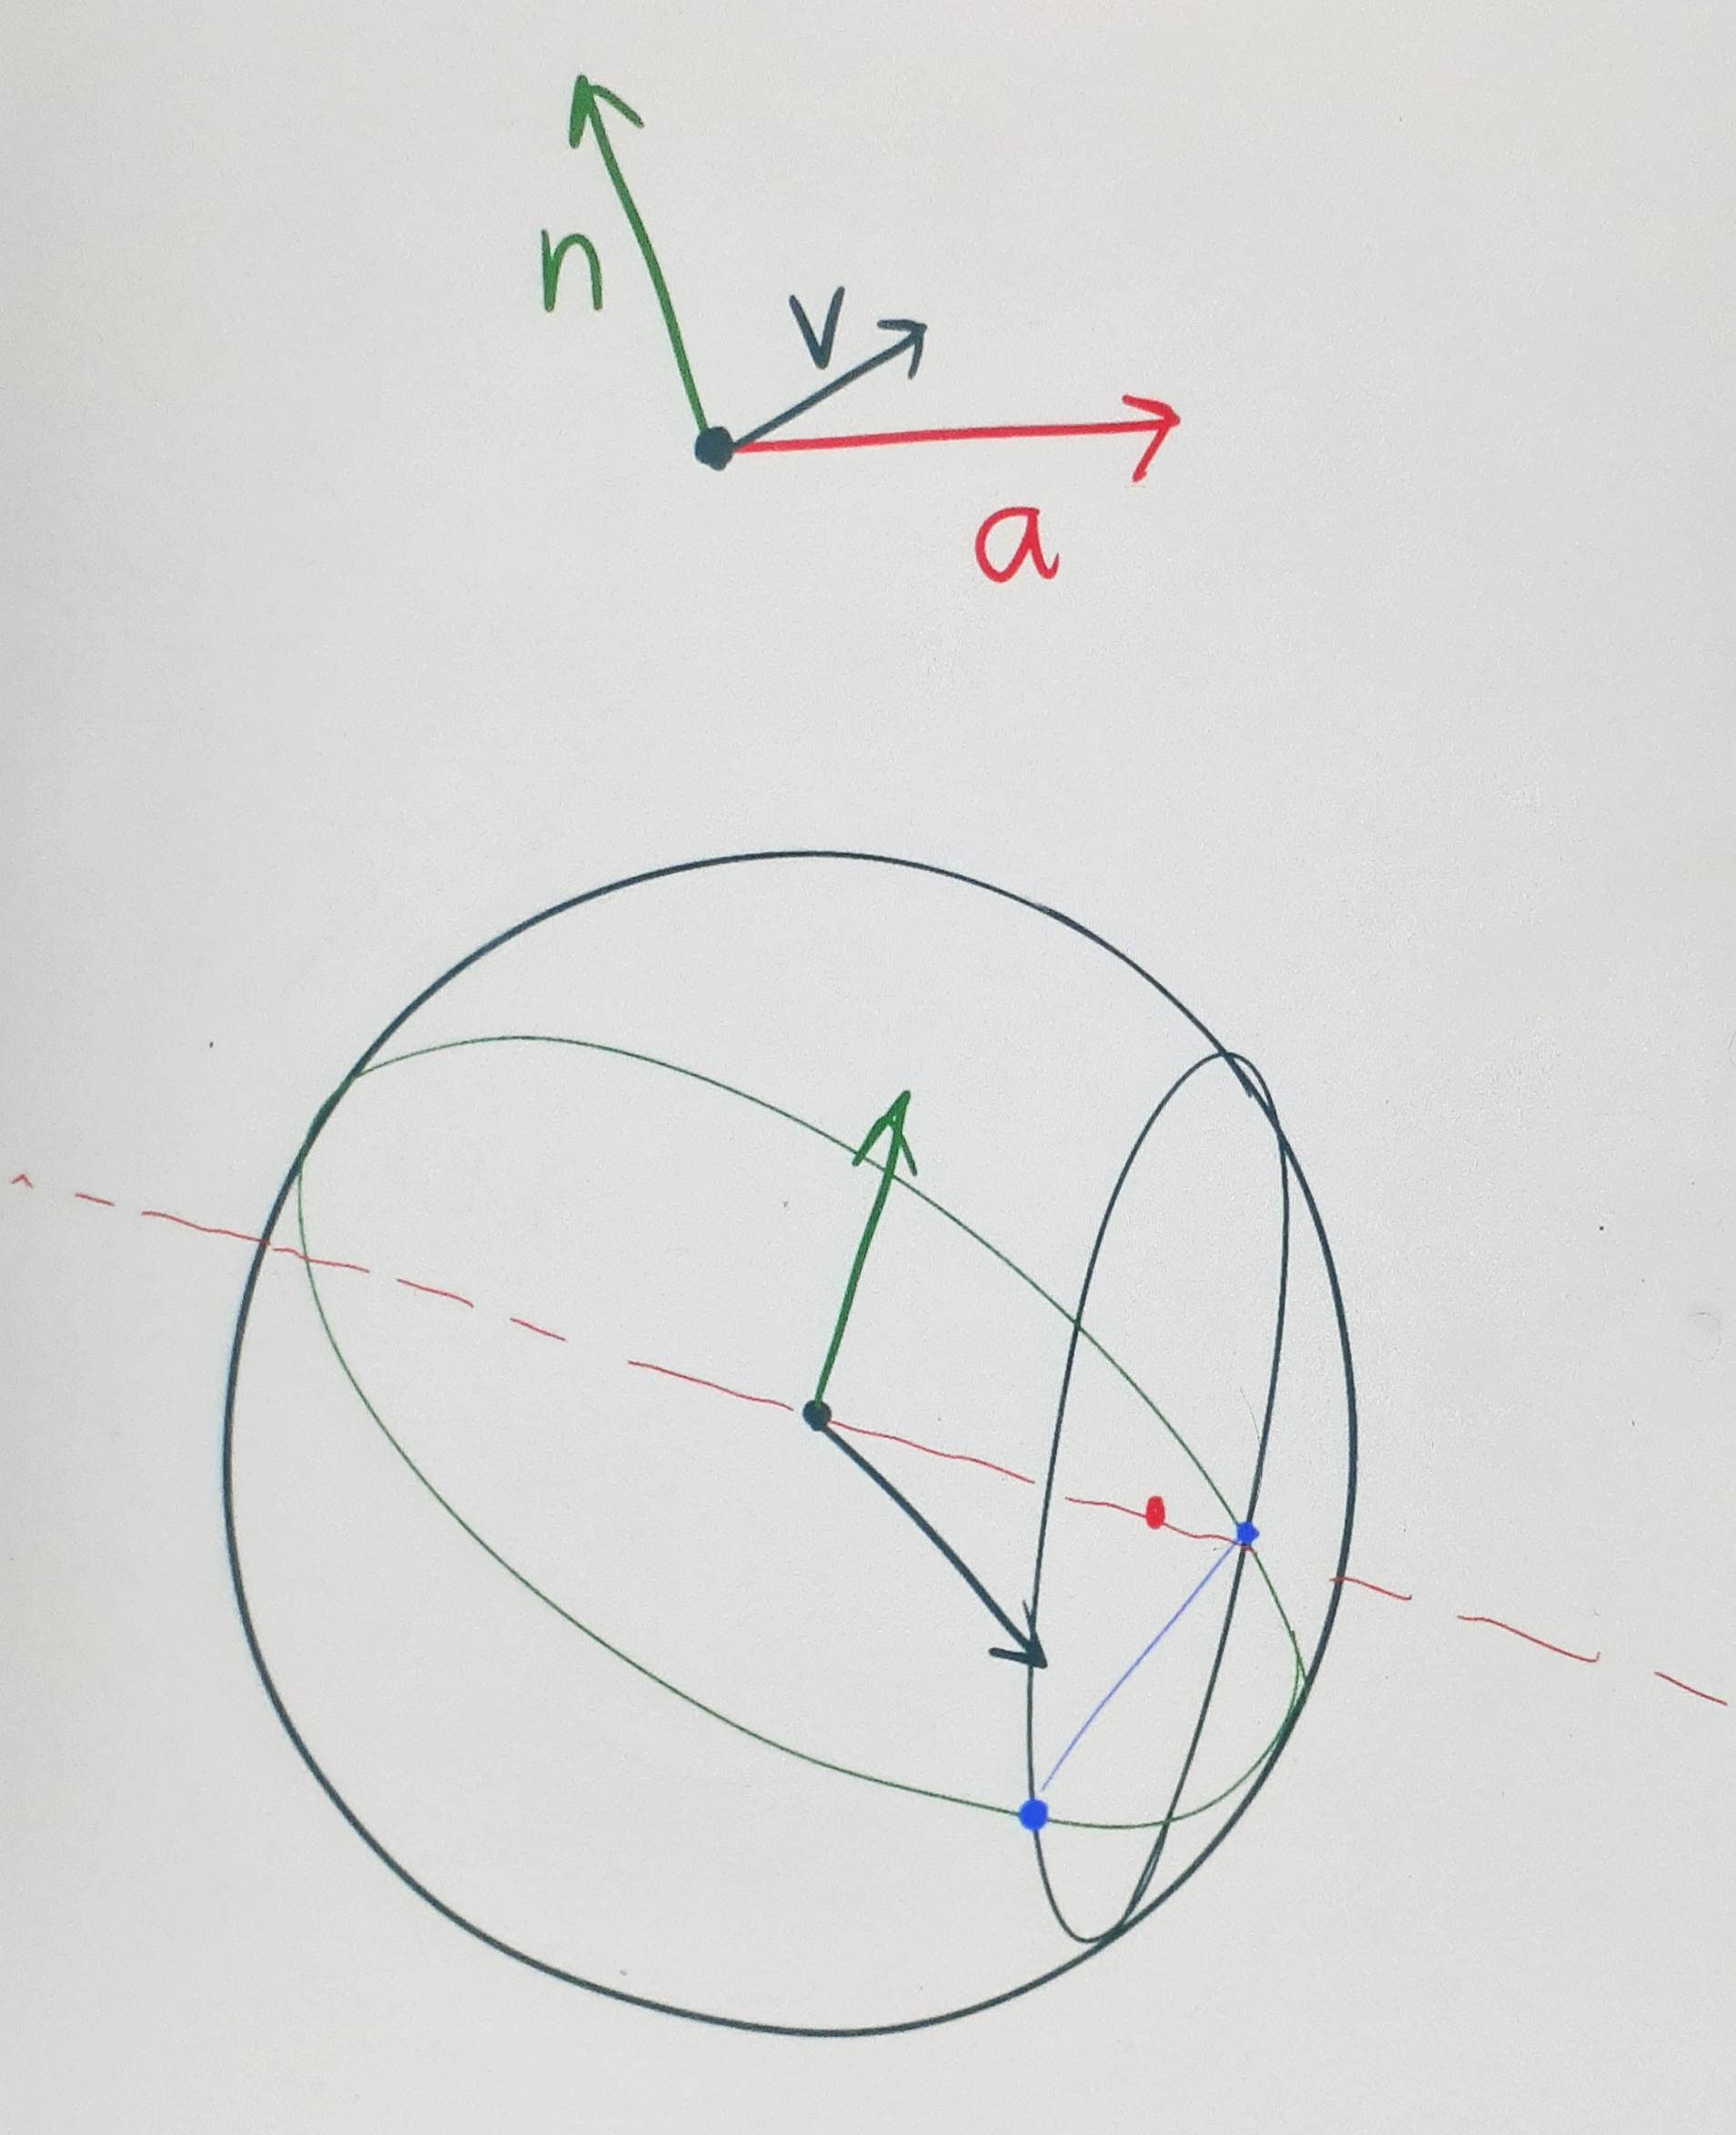 n
v
a